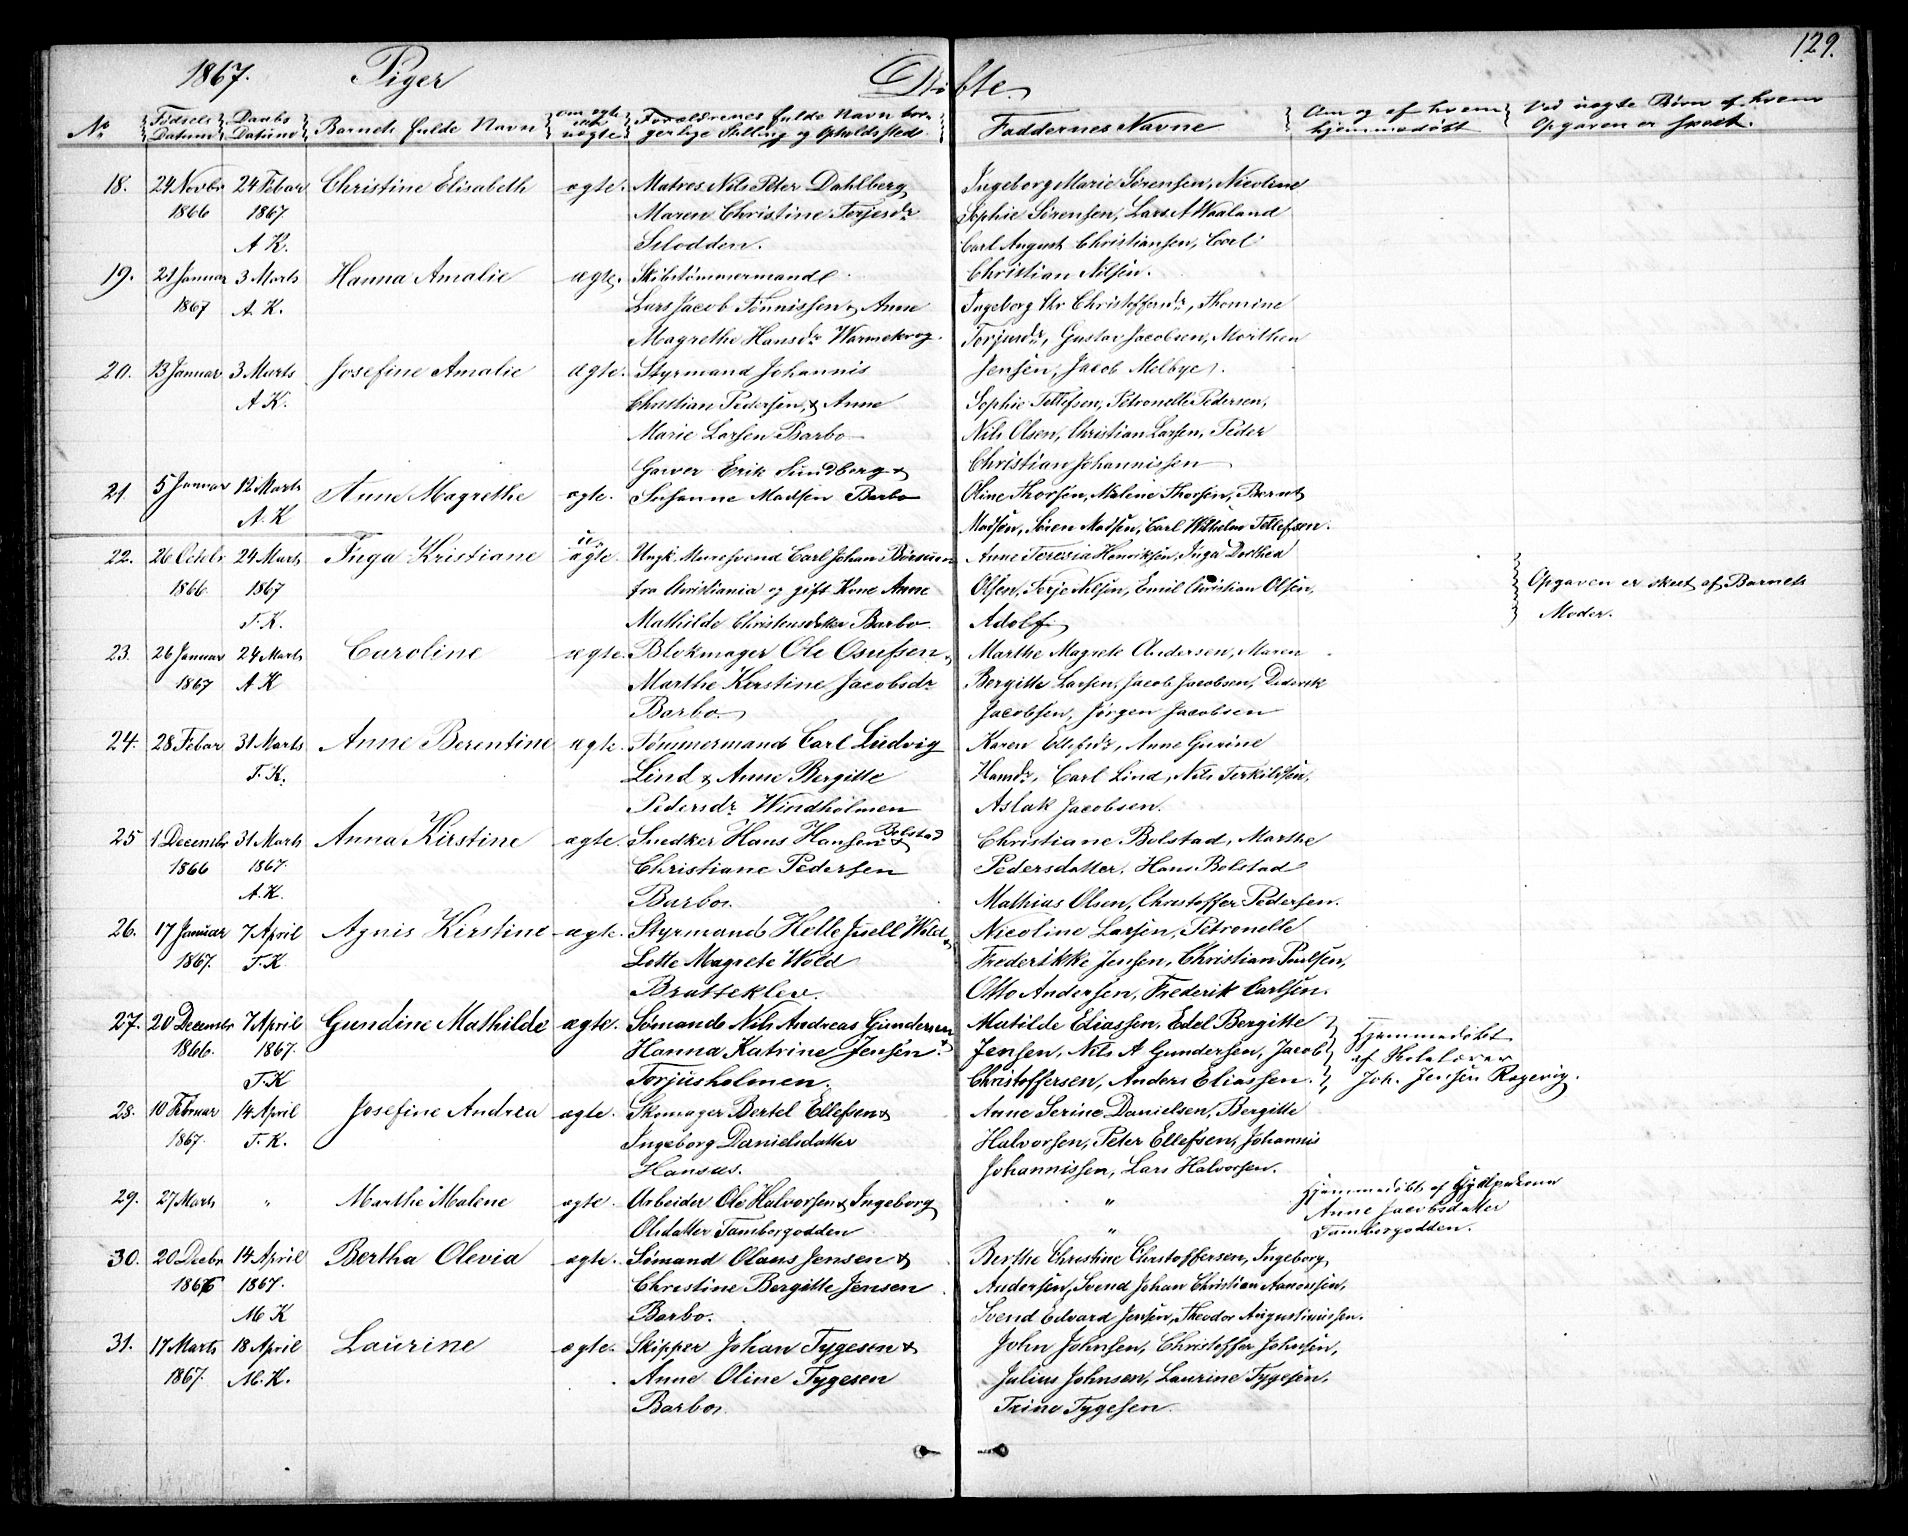 129.
1867. Piger Døbte.
No Fødsels Datum Daabs Datum Barnets fulde Navn om ægte eller uægte Forældrenes fulde Navn borgerlige Stilling og Opholdssted. Faddernes Navne Om og af hvem hjemmedøbt Ved uægte Børn af hvem Opgaven er skeet.
18. 24 Novbr 24 Febar Christine Elisabeth ægte. Matros Nils Peter Dahlberg Ingeborg Marie Sørensen, Nicoline
1866 1867 Maren Christine Terjesdr Sophie Sørensen, Lars A Waaland
A K. Slodden. Carl August Christiansen, Carl
19. 21 Januar 3 Marts Hanna Amalie ægte. Skibstømmermand Christian Nilsen.
1867 A. K. Lars Jacob Tønnissen & Anne Ingeborg Christoffersdr, Thomine
Magrethe Hansdr Warmekrog. Torjusdr, Gustav Jacobsen, Morthen
20. 13 Januar 3 Marts Josefine Amalie ægte. Styrmand Johannis Jensen, Jacob Melbye.
A K. Christian Pedersen, & Anne Sophie Tellefsen, Petronelle Pedersen,
Marie Larsen Barbo Nils Olsen, Christian Larsen, Peder
Garver Erik Sundberg & Christian Johannissen
21. 5 Januar 12 Marts Anne Magrethe ægte. Susanne Madsen Barbo Oline Thorsen, Malene Thorsen, Bernt
A. K Madsen, Søren Madsen, Carl Wilhelm Tellefsen.
22. 26 Octobr 24 Marts Inga Kristiane uægte. Ungk. Muresvend Carl Johan Børsum Anne Teresia Henriksen, Inga Dorthea
1866 1867 fra Christiania og gift Kone Anne Olsen, Terje Nilsen, Emil Christian Olsen, Opgaven er skeet af Barnets
T. K. Mathilde Christensdatter Barbo. Adolf Moder.
23. 26 Januar 24 Marts Caroline ægte. Blokmager Ole Osufsen & Marthe Magrete Andersen, Maren
1867 A K Marthe Kirstine Jacobsdr Bergitte Larsen, Jacob Jacobsen, Dederik
Barbo. Jacobsen, Jørgen Jacobsen
24. 28 Febar 31 Marts Anne Berentine ægte. Tømmermand Carl Ludvig Karen Ellefsdr, Anne Gurine
T. K. Lind & Anne Bergitte Hansdr, Carl Lind, Nils Terkildsen,
Pedersdr Windholmen Aslak Jacobsen.
25 1 Decembr 31 Marts Anna Kirstine ægte. Snedker Hans Hansen Bolstad & Christiane Bolstad, Marthe
1866 1867. Christiane Pedersen Pedersdatter, Hans Bolstad
A. K. Barbo. Mathias Olsen, Christoffer Pedersen.
26. 17 Januar 7 April Agnis Kirstine ægte. Styrmand Kelle Juell Wold & Nicoline Larsen, Petronelle
1867. T. K Lotte Magrete Wold Frederikke Jensen, Christian Poulsen,
Bratteklev. Otto Andersen, Frederik Carlsen.
27. 20 Decembr 7 April Gundine Mathilde ægte. Sømand Nils Andreas Gundersen & Matilde Eliassen, Edel Bergitte Hjemmedøbt
1866. 1867. Hanna Katrine Jensen. Jensen, Nils A Gundersen, Jacob af Skolelærer
T. K Torjusholmen. Christoffersen, Anders Eliassen. Joh. Jensen Rægevig.
28. 10 Febuar 14 April Josefine Andrea ægte. Skomager Bertel Ellefsen & Anne Serine Danielsen, Bergitte
1867. T. K. Ingeborg Danielsdatter Halvorsen, Peter Ellefsen, Johannis
Hansæs. Johannissen, Lars Halvorsen.
29. 27 Marts " Marthe Malene ægte. Arbeider Ole Halvorsen & Ingeborg " Hjemmedøbt af Gjordemoren
Olsdatter Tamborgodden " Anne Jacobsdatter
Tamborgodden.
30. 20 Decbr 14 April Bertha Olevia ægte. Sømand Olaus Jensen & Berthe Christine Christoffersen, Ingeborg
1866 1867. Christine Bergitte Jensen Andersen, Svend Johan Christian Aanonsen,
M K Barbo. Svend Edvard Jensen, Theodor Augustinussen.
31. 17 Marts 18 April Laurine ægte. Skipper Johan Tygesen & John Johnsen, Christoffer Johnsen,
1867. M. K. Anne Oline Tygesen Julius Johnsen, Laurine Tygesen,
Barbo. Trine Tygesen